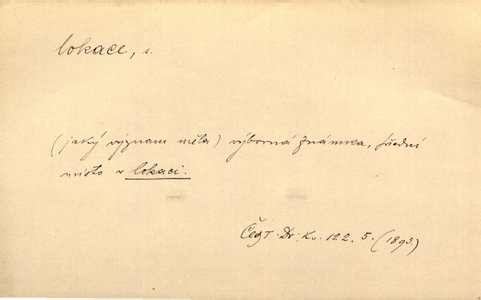 lokace, s.
(jaký význam měla) výborná známka, přední
místo v lokaci.
Kv. 122. 5. (1893.)